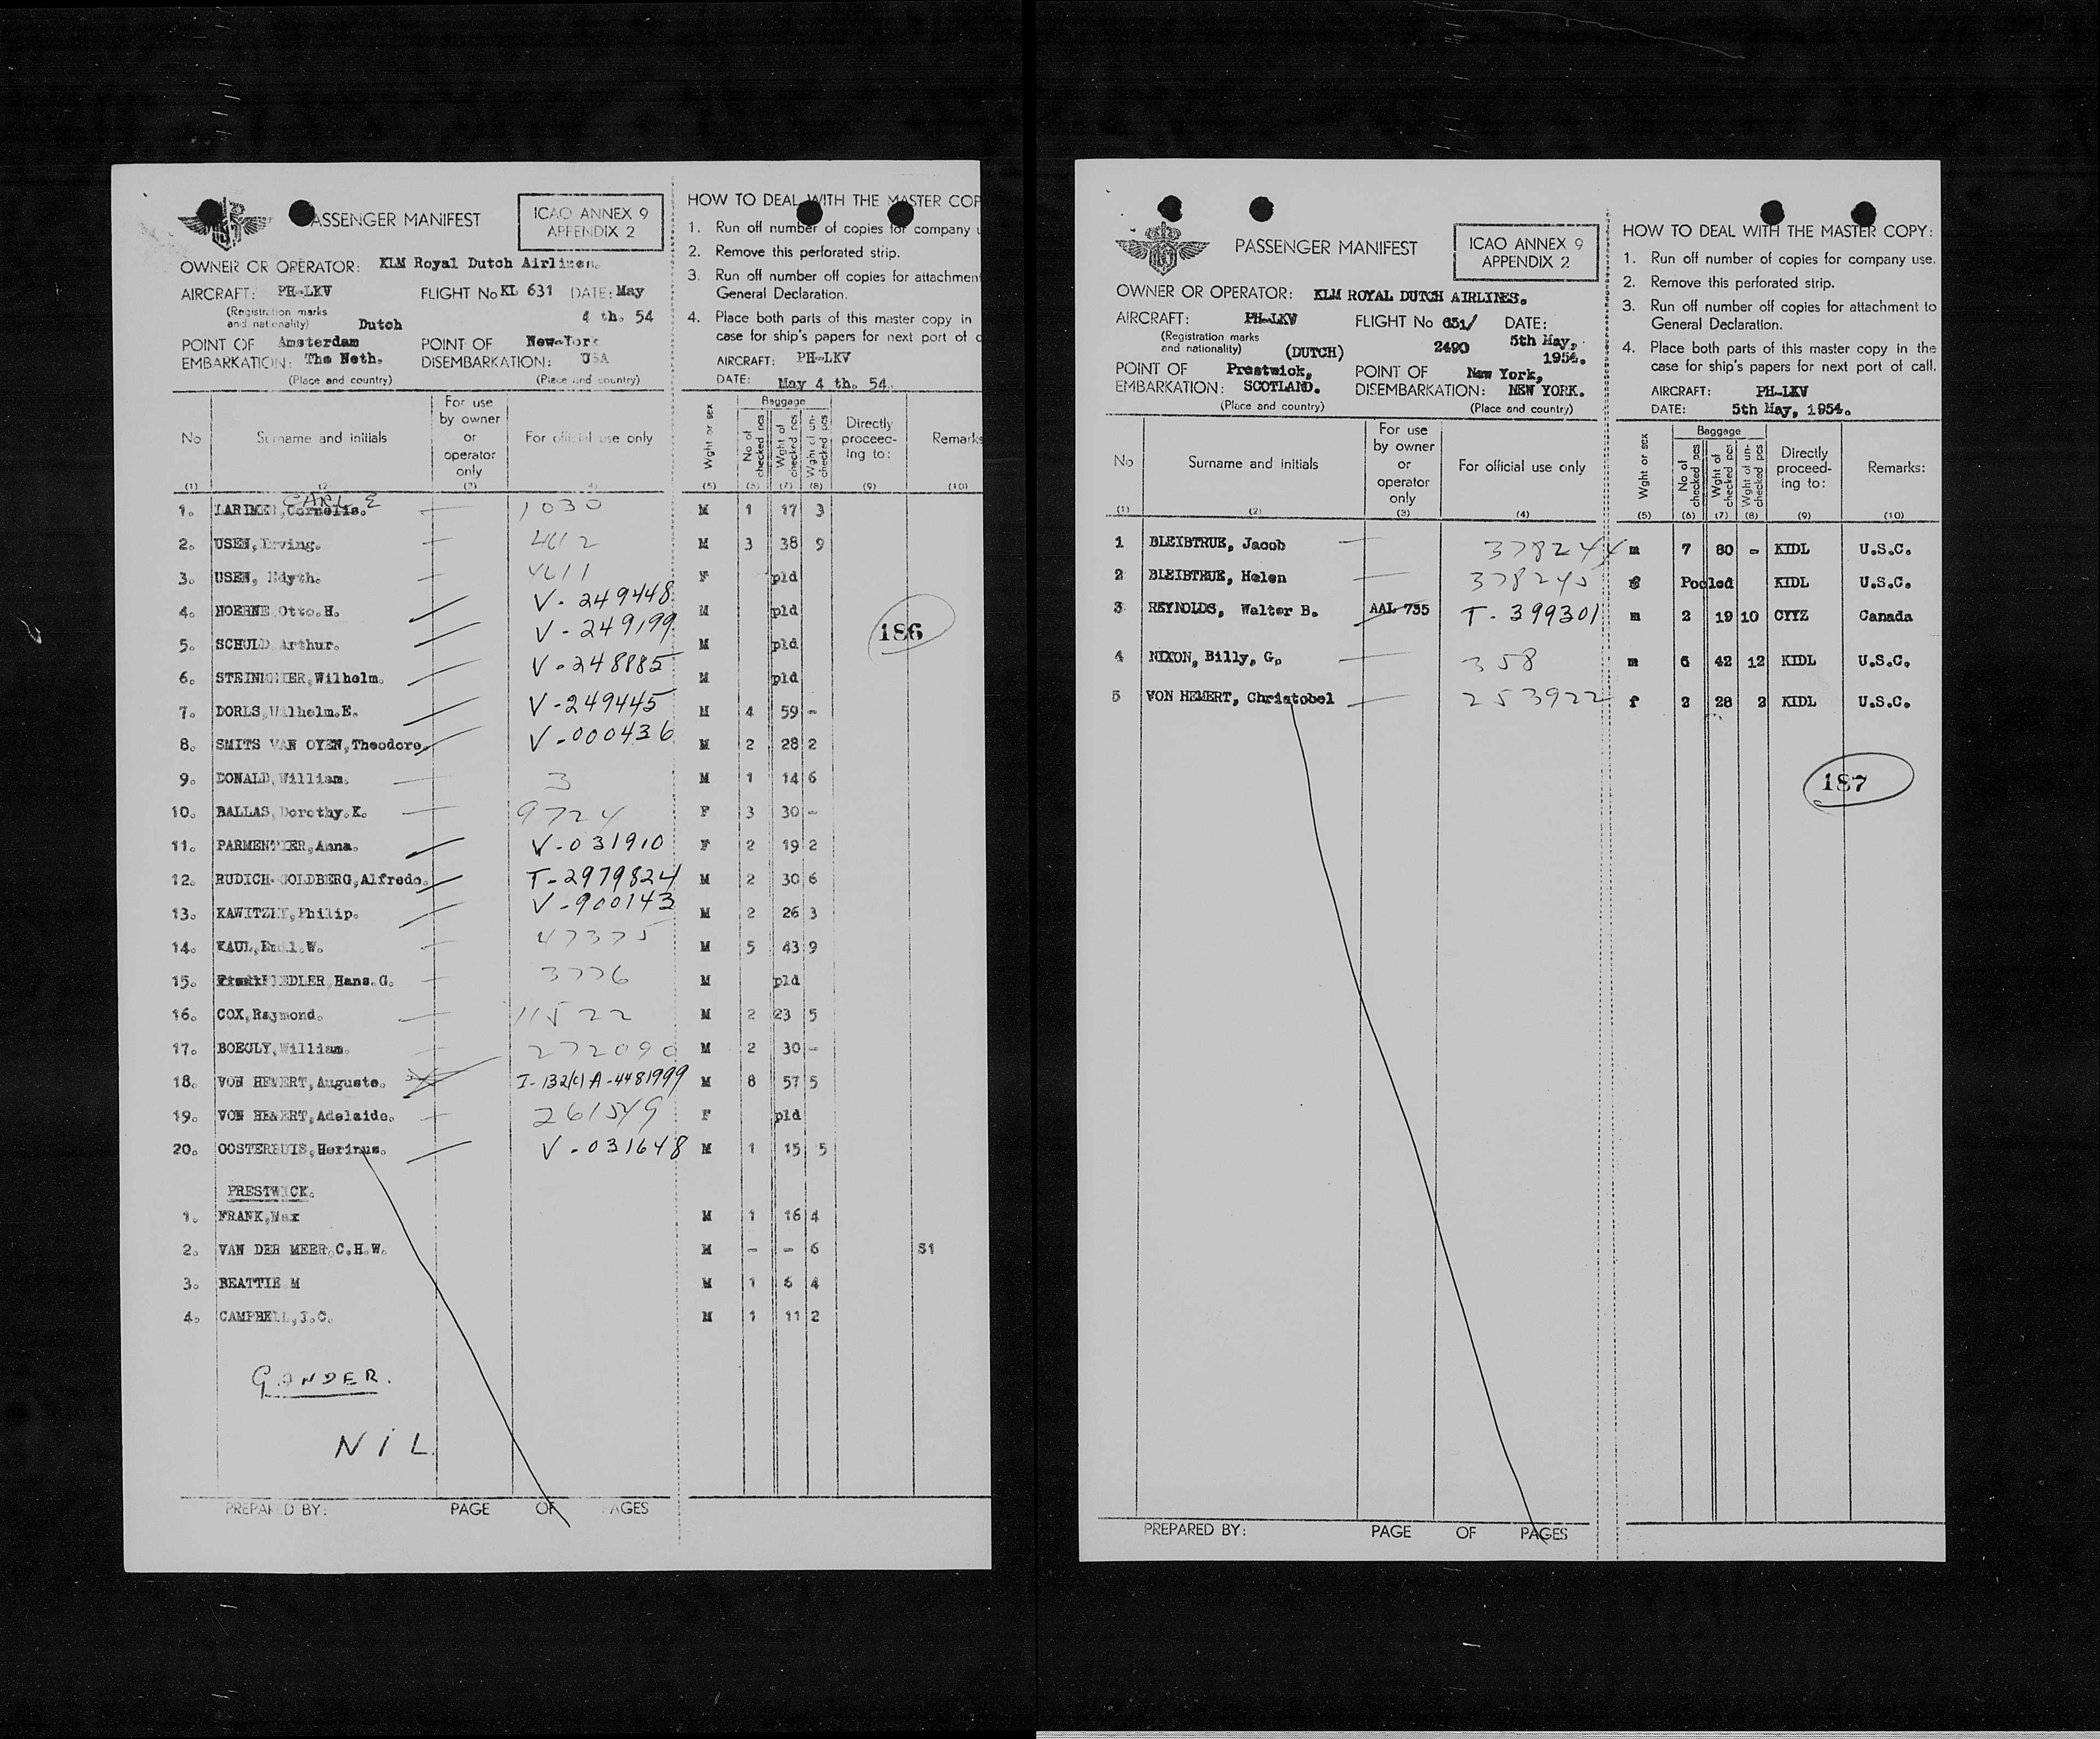 PASSENGER MANIFEST
ICAO ANNEX 9
APPENDIX 2
OWNER OR OPERATOR: KLM Royal Dutch Airlines.
AIRCRAFT: PH-LKV FLIGHT No KL 631 DATE: May
(Registration marks
and nationality) Dutch 4 th. 54
POINT OF Amsterdam POINT OF New-York
EMBARKATION: The Neth. DISEMBARKATION: USA
(Place and country) (Place and country)
HOW TO DEAL WITH THE MASTER COP
1. Run off number of copies for company u
2. Remove this perforated strip.
3. Run off number off copies for attachment
General Declaration.
4. Place both parts of this master copy in
case for ship's papers for next port of c
AIRCRAFT: PH-LKV
DATE: May 4 th. 54.
No Surname and initials For use by owner or operator only For official use only Wght or sex Baggage No of checked pcs Wght of checked pcs Wght of un-checked pcs Directly proceed-ing to: Remarks
(1) (2) (3) (4) (5) (6) (7) (8) (9) (10)
CARL E
1. LARIMER, Cornelis. 1030 M 1 17 3
2. USEN, Irving. 4612 M 3 38 9
3. USEN, Edyth. 4611 F pld
4. HOEHNE, Otto.H. V-249448 M pld
5. SCHULD Arthur. V-249199 M pld
186
6. STEINMEIER, Wilhelm. V-248885 M pld
7. DORLS, Wilhelm.E. V-249445 M 4 59 -
8. SMITS VAN OYEN, Theodore. V-000436 M 2 28 2
9. DONALD, William. 3 M 1 14 6
10. BALLAS, Dorothy.K. 9724 F 3 30 -
11. PARMENTIER, Anna. V-031910 F 2 19 2
12. RUDICH-GOLDBERG, Alfredo. T-2979824 M 2 30 6
13. KAWITZKY, Philip. V-900143 M 2 26 3
14. KAUL, Emil.W. 47375 M 5 43 9
15. FIEDLER, Hans.G. 3776 M pld
16. COX, Raymond. 11522 M 2 23 5
17. BOEGLY, William. 272090 M 2 30 -
18. VON HEMERT, Auguste. I-132(c) A-4481999 M 8 57 5
19. VON HEMERT, Adelaide. 261549 F pld
20. OOSTERHUIS, Herinus. V-031648 M 1 15 5
PRESTWICK.
1. FRANK, Max M 1 16 4
2. VAN DER MEER, C.H.W. M - - 6 S1
3. BEATTIE M M 1 6 4
4. CAMPBELL, J.C. M 1 11 2
GANDER.
NIL
PREPARED BY: PAGE OF PAGES
PASSENGER MANIFEST
ICAO ANNEX 9
APPENDIX 2
OWNER OR OPERATOR: KLM ROYAL DUTCH AIRLINES.
AIRCRAFT: PH-LKV FLIGHT No 631/ DATE:
(Registration marks
and nationality) (DUTCH) 2490 5th May, 1954.
POINT OF Prestwick, POINT OF New York,
EMBARKATION: SCOTLAND. DISEMBARKATION: NEW YORK.
(Place and country) (Place and country)
HOW TO DEAL WITH THE MASTER COPY:
1. Run off number of copies for company use.
2. Remove this perforated strip.
3. Run off number off copies for attachment to
General Declaration.
4. Place both parts of this master copy in the
case for ship's papers for next port of call.
AIRCRAFT: PH-LKV
DATE: 5th May, 1954.
No Surname and initials For use by owner or operator only For official use only Wght or sex Baggage No of checked pcs Wght of checked pcs Wght of un-checked pcs Directly proceed-ing to: Remarks:
(1) (2) (3) (4) (5) (6) (7) (8) (9) (10)
1 BLEIBTRUE, Jacob 378244 m 7 80 - KIDL U.S.C.
2 BLEIBTRUE, Helen 378245 f Pooled KIDL U.S.C.
3 REYNOLDS, Walter B. AAL 735 T-399301 m 2 19 10 CYYZ Canada
4 NIXON, Billy, G. 358 m 6 42 12 KIDL U.S.C.
5 VON HEMERT, Christobel 253922 f 2 28 2 KIDL U.S.C.
187
PREPARED BY: PAGE OF PAGES